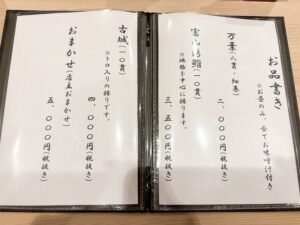 お品書き
※お昼のみ、全てお味噌汁付き
万葉(八貫・細巻)
二、〇〇〇円(税抜き)
富山湾鮨(一〇貫)
※地物を中心に握ります。
三、〇〇〇円(税抜き)
古城(一〇貫)
※トロ入りの握りです。
四、〇〇〇円(税抜き)
おまかせ(店主おまかせ)
五、〇〇〇円(税抜き)